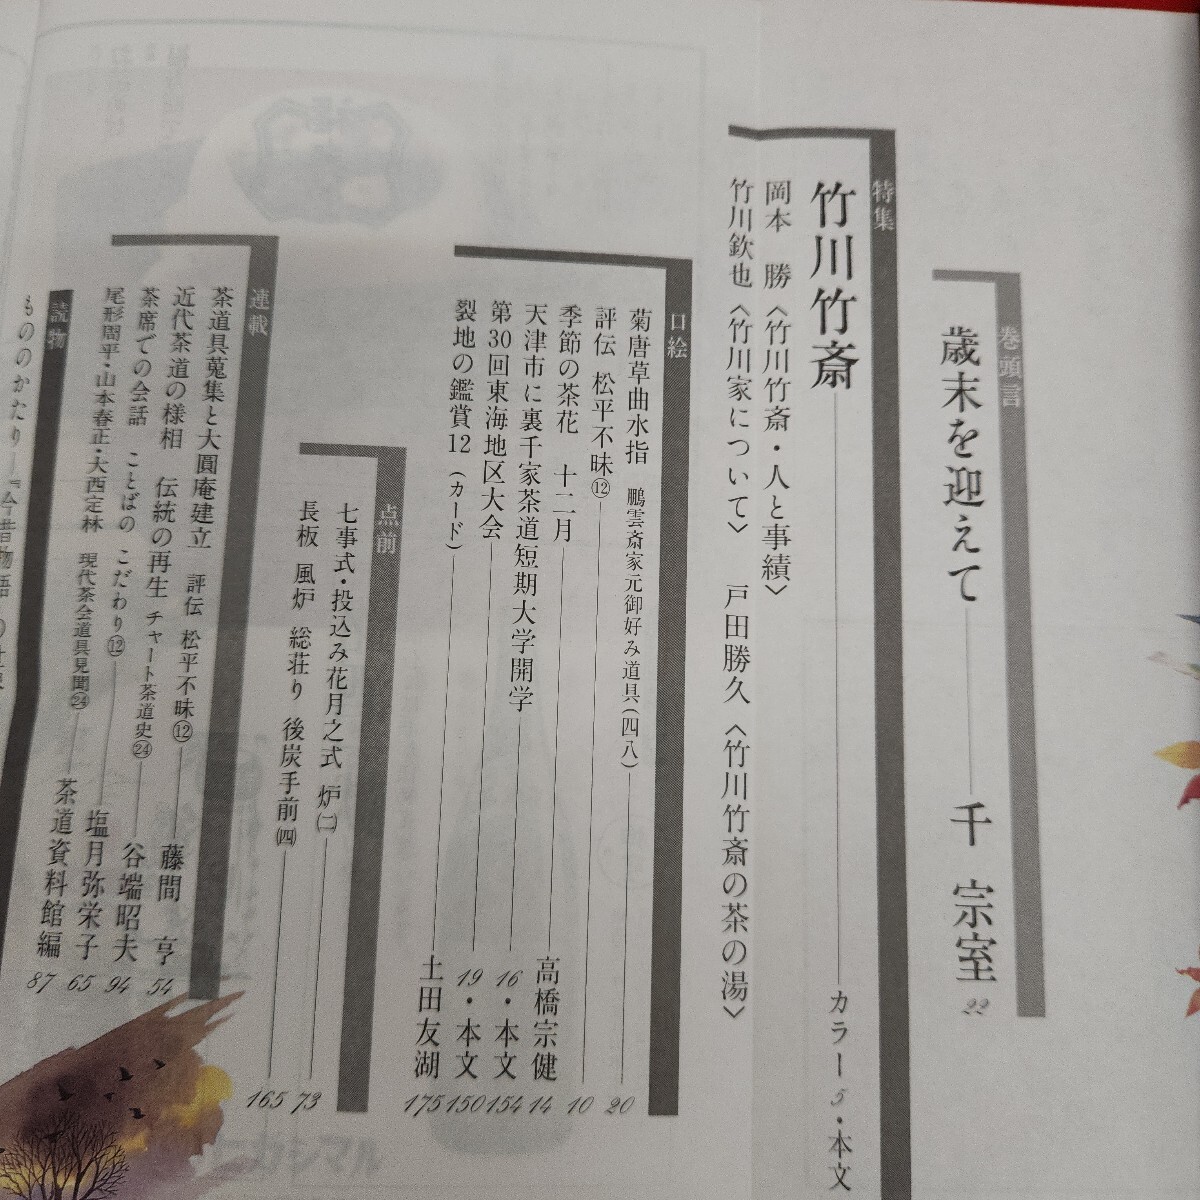 巻頭言
歳末を迎えて 千 宗室 22
特集
竹川竹斎 カラー5・本文
岡本 勝〈竹川竹斎・人と事績〉
竹川欽也〈竹川家について〉 戸田勝久〈竹川竹斎の茶の湯〉
口絵
菊唐草曲水指 鵬雲斎家元御好み道具(四八) 20
評伝 松平不昧⑫ 10
季節の茶花 十二月 高橋宗健 14
天津市に裏千家茶道短期大学開学 16・本文154
第30回東海地区大会 19・本文150
裂地の鑑賞12(カード) 土田友湖 175
点前
七事式・投込み花月之式 炉㈡ 73
長板 風炉 総荘り 後炭手前㈣ 165
連載
茶道具蒐集と大圓庵建立 評伝 松平不昧⑫ 藤間 亨 54
近代茶道の様相 伝統の再生 チャート茶道史㉔ 谷端昭夫 94
茶席での会話 ことばの こだわり⑫ 塩月弥栄子 65
尾形周平・山本春正・大西定林 現代茶会道具見聞㉔ 茶道資料館編 87
読物
もののかたり―『今昔物語